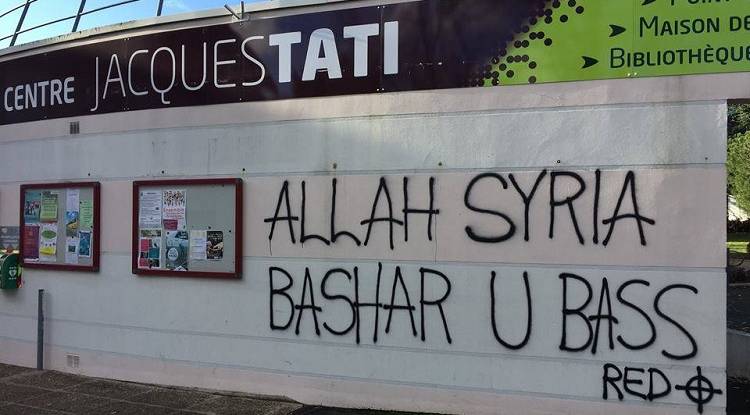 CENTRE JACQUES TATI
MAISON DE
BIBLIOTHÈQUE
ALLAH SYRIA
BASHAR U BASS
RED